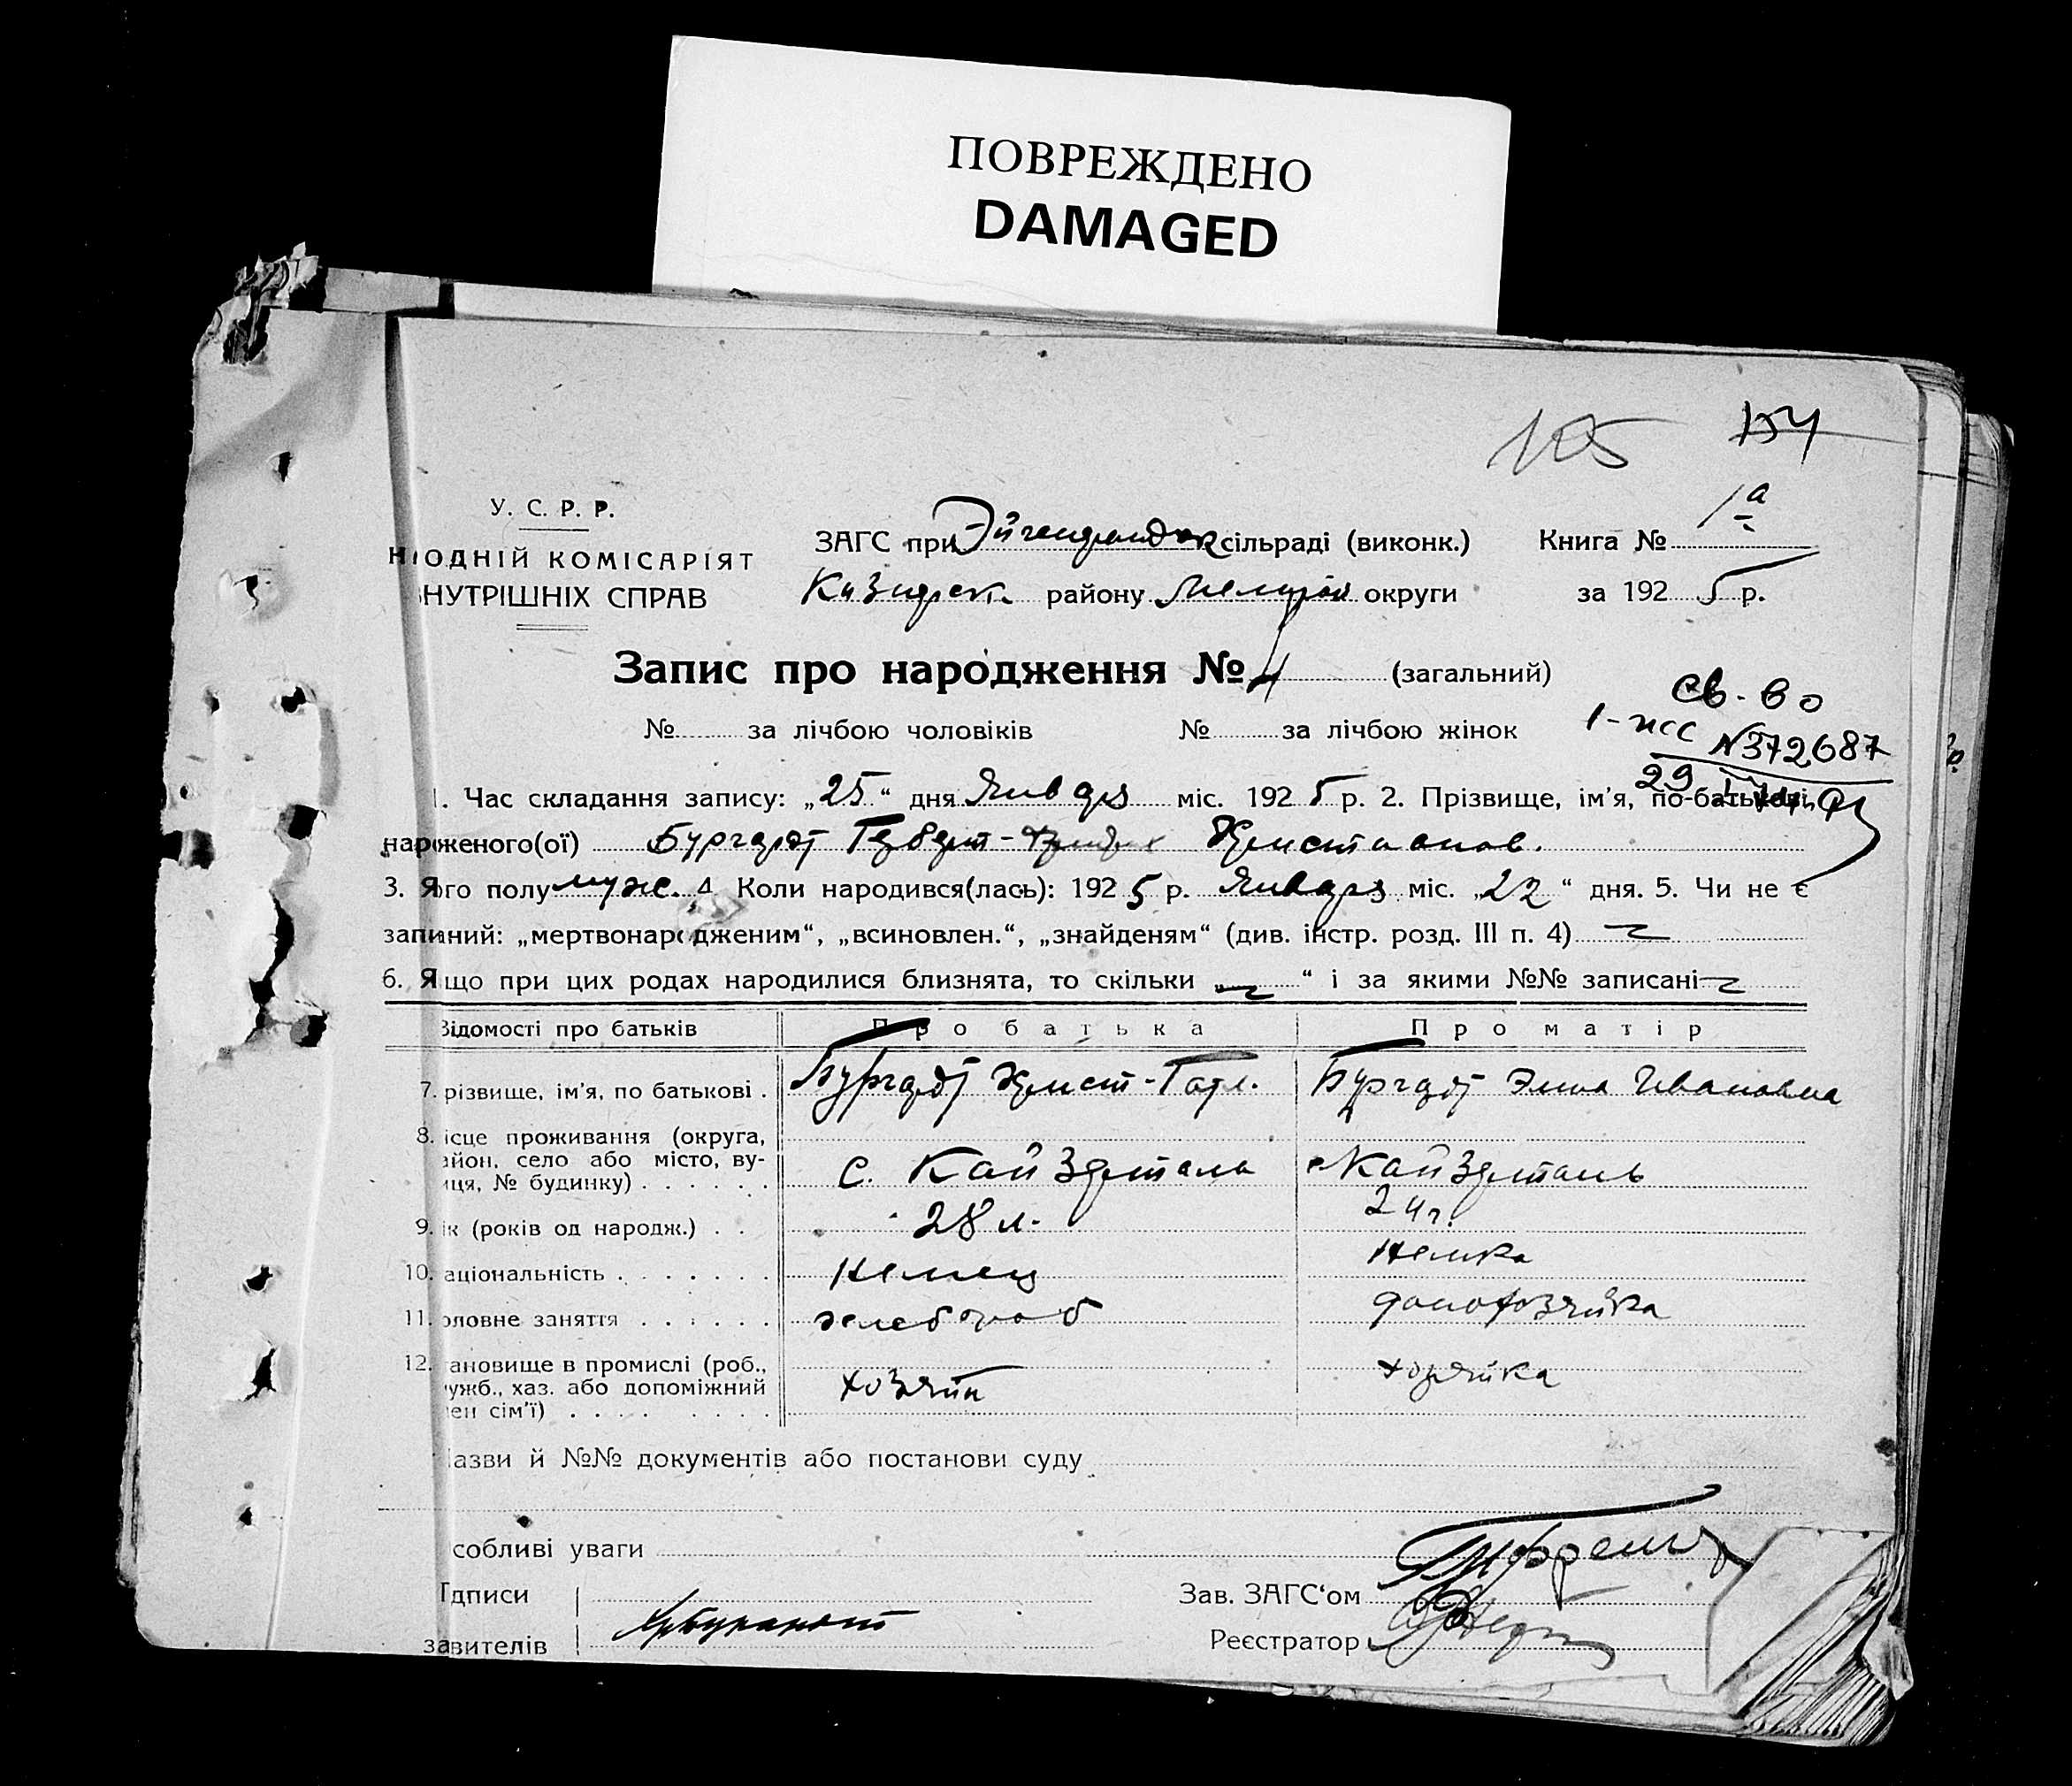 ПОВРЕЖДЕНО
DAMAGED
105 154
У. С. Р. Р.
ОДНІЙ КОМІСАРІЯТ
НУТРІШНІХ СПРАВ
ЗАГС при сільраді (виконк.) Книга № 1а
району округи за 1925 р.
Запис про народження № 4 (загальний)
№ за лічбою чоловіків № за лічбою жінок
св-во
№372687
29
1. Час складання запису: „25“ дня Января міс. 1925 р. 2. Прізвище, ім'я, по-батькові
нар женого(ої) Бургардт Християнов.
3. Його полу муж. 4 Коли народився(лась): 1925 р. Января міс. „22“ дня. 5. Чи не є
запи ний: „мертвонародженим“, „всиновлен.“, „знайденям“ (див. інстр. розд. III п. 4)
6. Я що при цих родах народилися близнята, то скільки „ “ і за якими №№ записані
Відомості про батьків Про батька Про матір
7. різвище, ім'я, по батькові . Бургардт Христ-Готл. Бургардт Эмма Ивановна
8. ісце проживання (округа,
айон, село або місто, ву-
иця, № будинку) . . . . . . с. Кайзерталь Кайзерталь
9. ік (років од народж.) . . 28 л. 24 г.
10. аціональність . . . . . . . немец немка
11. оловне заняття . . . . . . хлебороб домохозяйка
12. тановище в промислі (роб.,
ужб., хаз. або допоміжний
ен сім'ї) . . . . . . . . хозяин хозяйка
азви й №№ документів або постанови суду
собливі уваги
ідписи Зав. ЗАГС'ом
завителів Реєстратор